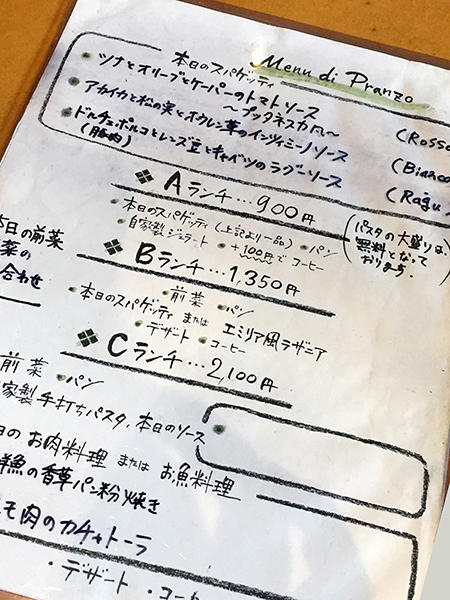 本日のスパゲッティ Menu di Pranzo
ツナとオリーブとケーパーのトマトソース
〜プッタネスカ風〜 (Rosso
アカイカと松の実とホウレン草のインツィミーノソース (Bianco
ドルチェポルコとレンズ豆とキャベツのラグーソース (Ragu
(豚肉)
Aランチ…900円
本日のスパゲッティ(上記より一品) パン
自家製ジェラート +100円でコーヒー
(パスタの大盛りは、
無料となって
おります。)
Bランチ…1,350円
本日の前菜
菜の
合わせ
前菜 パン
本日のスパゲッティ または エミリア風ラザニア
デザート コーヒー
Cランチ…2,100円
前菜 パン
家製 手打ちパスタ、本日のソース
日の お肉料理 または お魚料理
魚の香草パン粉焼き
モモ肉のカチャトーラ
・デザート ・コーヒ